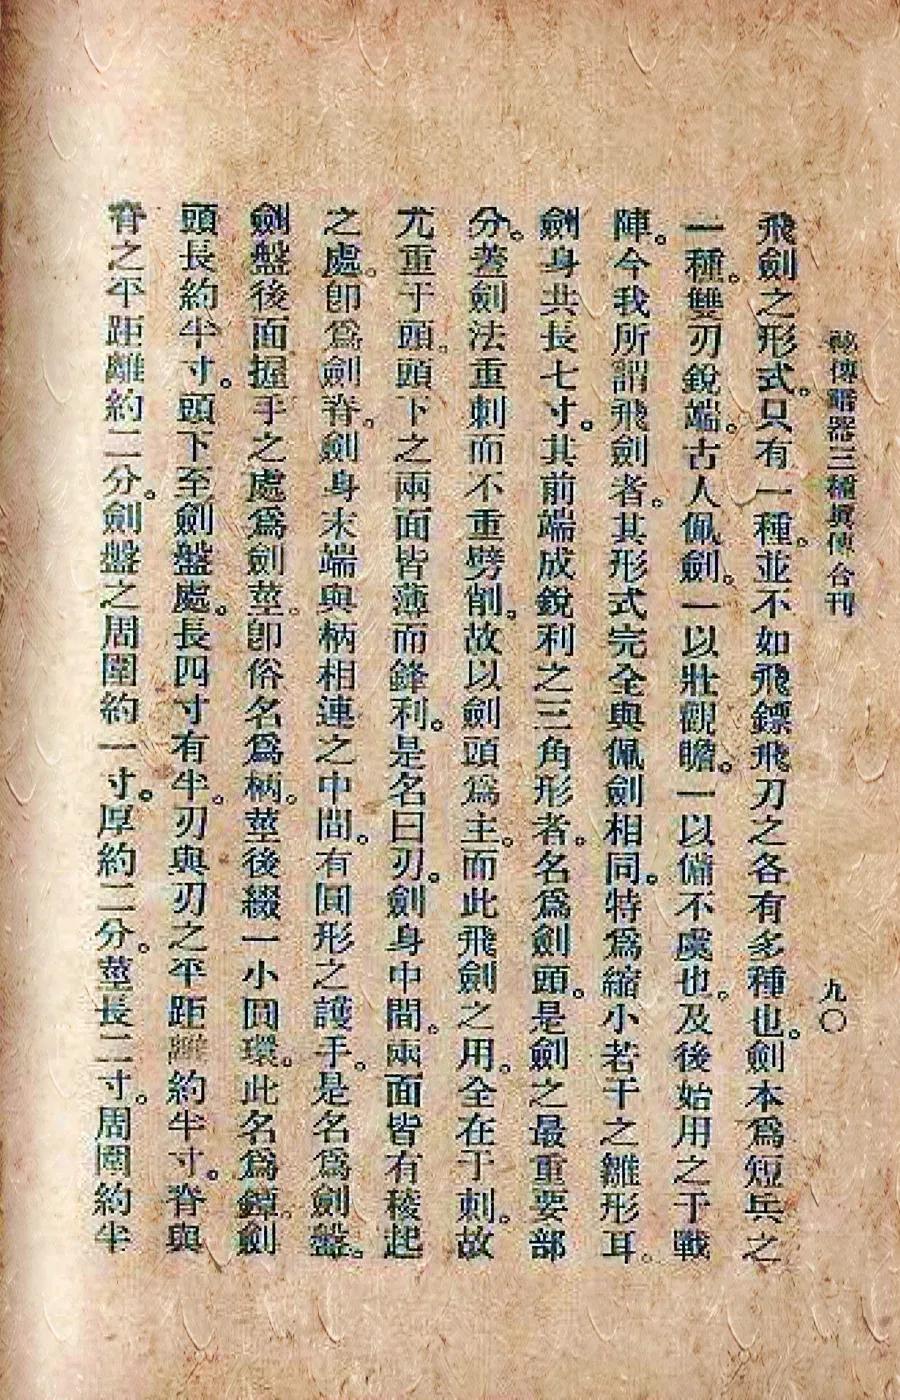 祕傳暗器三種真傳合刊
九〇
飛劍之形式。只有一種。並不如飛鏢飛刀之各有多種也。劍本爲短兵之
一種。雙刃銳端。古人佩劍。一以壯觀瞻。一以備不虞也。及後始用之于戰
陣。今我所謂飛劍者。其形式完全與佩劍相同。特爲縮小若干之雛形耳。
劍身共長七寸。其前端成銳利之三角形者。名爲劍頭。是劍之最重要部
分。蓋劍法重刺而不重劈削。故以劍頭爲主。而此飛劍之用。全在于刺。故
尤重于頭。頭下之兩面皆薄而鋒利。是名曰刃。劍身中間。兩面皆有稜起
之處。卽爲劍脊。劍身末端與柄相連之中間。有圓形之護手。是名爲劍盤。
劍盤後面握手之處爲劍莖。卽俗名爲柄。莖後綴一小圓環。此名爲鐔。劍
頭長約半寸。頭下至劍盤處。長四寸有半。刃與刃之平距離約半寸。脊與
脊之平距離約二分。劍盤之周圍約一寸。厚約二分。莖長二寸。周圍約半